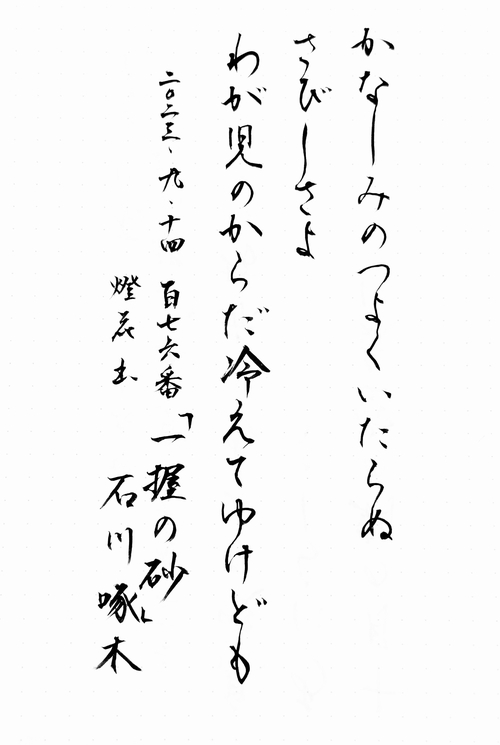 かなしみのつよくいたらぬ
さびしさよ
わが児のからだ冷えてゆけども
二〇二三、九、十四 百七六番「一握の砂」
燈花書 石川啄木